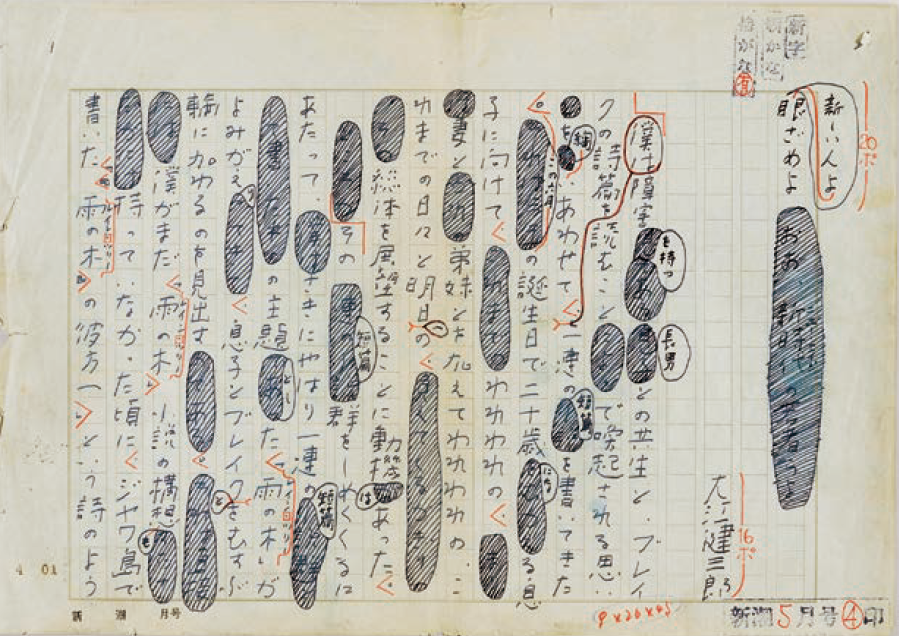 新字
新かな
捨がな 有
20ポ
新しい人よ
眼ざめよ
大江健三郎
16ポ
僕は障害を持つ長男との共生と、ブレイ
クの詩篇を読むことで喚起される思い
を綯いあわせて、一連の短篇を書いてきた
この六月の誕生日で二十歳になる息
子に向けて、われわれの、
妻と弟妹とを加えてわれわれの、こ
れまでの日々と明日の、
総体を展望することに動機はあった。
その短篇群をしめくくるに
あたって、さきにやはり一連の短篇
の主題としたあった「雨の木」が
よみがえり、息子とブレイクをむすぶ
輪に加わるのを見出す
僕がまだ「雨の木」小説の構想も
持っていなかった頃に、ジャワ島で
書いた《「雨の木」の彼方へ》という詩のよう
新潮 月号
4 01
9×20×45
新潮5月号④印